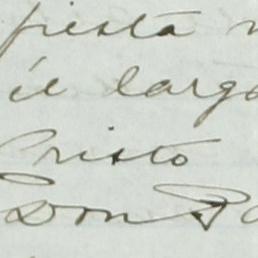 fiesta
il largo
Cristo
Don